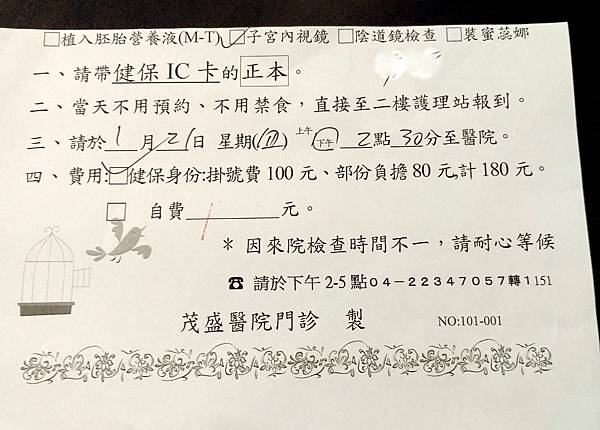 □植入胚胎營養液(M-T) ☑子宮內視鏡 □陰道鏡檢查 □裝蜜蕊娜
一、請帶健保IC卡的正本。
二、當天不用預約、不用禁食，直接至二樓護理站報到。
三、請於1月21日 星期(四) 上午 下午 2點30分至醫院。
四、費用:☑健保身份:掛號費100元、部份負擔80元,計180元。
□ 自費 元。
* 因來院檢查時間不一，請耐心等候
☎ 請於下午2-5點04-22347057轉1151
茂盛醫院門診 製 NO:101-001